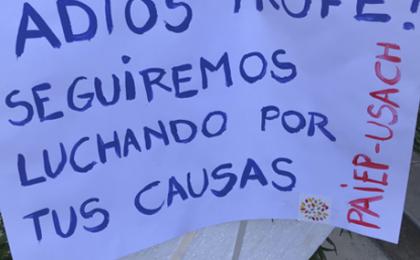 ADIOS PROFE!
SEGUIREMOS
LUCHANDO POR
TUS CAUSAS
PAiEP-USACH